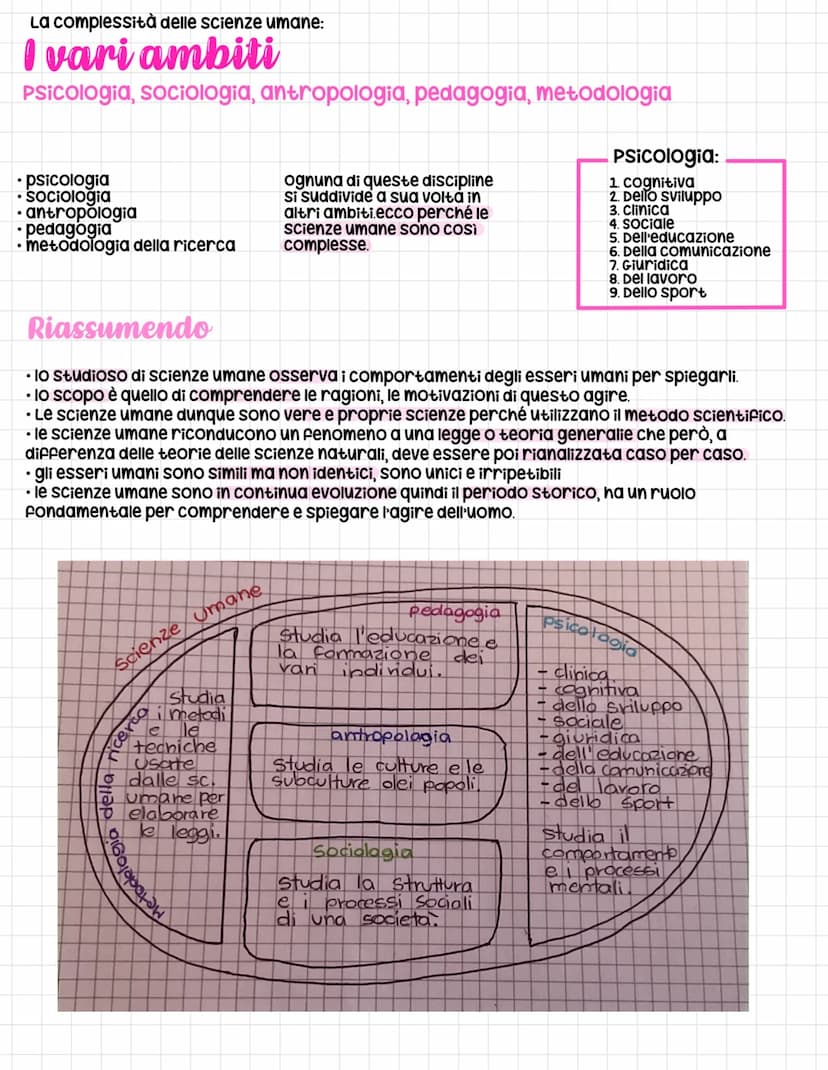 La complessità delle scienze umane:
I vari ambiti
Psicologia, sociologia, antropologia, pedagogia, metodologia
• psicologia
• sociologia
• antropologia
• pedagogia
• metodologia della ricerca
ognuna di queste discipline
si suddivide a sua volta in
altri ambiti.ecco perché le
scienze umane sono così
complesse.
Psicologia:
1. cognitiva
2. Dello sviluppo
3. clinica
4. sociale
5. Dell'educazione
6. Della comunicazione
7. Giuridica
8. Del lavoro
9. Dello sport
Riassumendo
• lo studioso di scienze umane osserva i comportamenti degli esseri umani per spiegarli.
• lo scopo è quello di comprendere le ragioni, le motivazioni di questo agire.
• Le scienze umane dunque sono vere e proprie scienze perché utilizzano il metodo scientifico.
• le scienze umane riconducono un fenomeno a una legge o teoria generalie che però, a
differenza delle teorie delle scienze naturali, deve essere poi rianalizzata caso per caso.
• gli esseri umani sono simili ma non identici, sono unici e irripetibili
• le scienze umane sono in continua evoluzione quindi il periodo storico, ha un ruolo
fondamentale per comprendere e spiegare l'agire dell'uomo.
scienze umane
Metodologia della ricerca
studia
i metodi
e le
tecniche
usate
dalle sc.
umane per
elaborare
le leggi.
pedagogia
studia l'educazione e
la formazione dei
vari individui.
antropologia
studia le culture e le
subculture dei popoli.
sociologia
studia la struttura
e i processi sociali
di una società.
psicologia
- clinica
- cognitiva
- dello sviluppo
- sociale
- giuridica
- dell'educazione
- della comunicazione
- del lavoro
- dello sport
studia il
comportamento
e i processi
mentali.